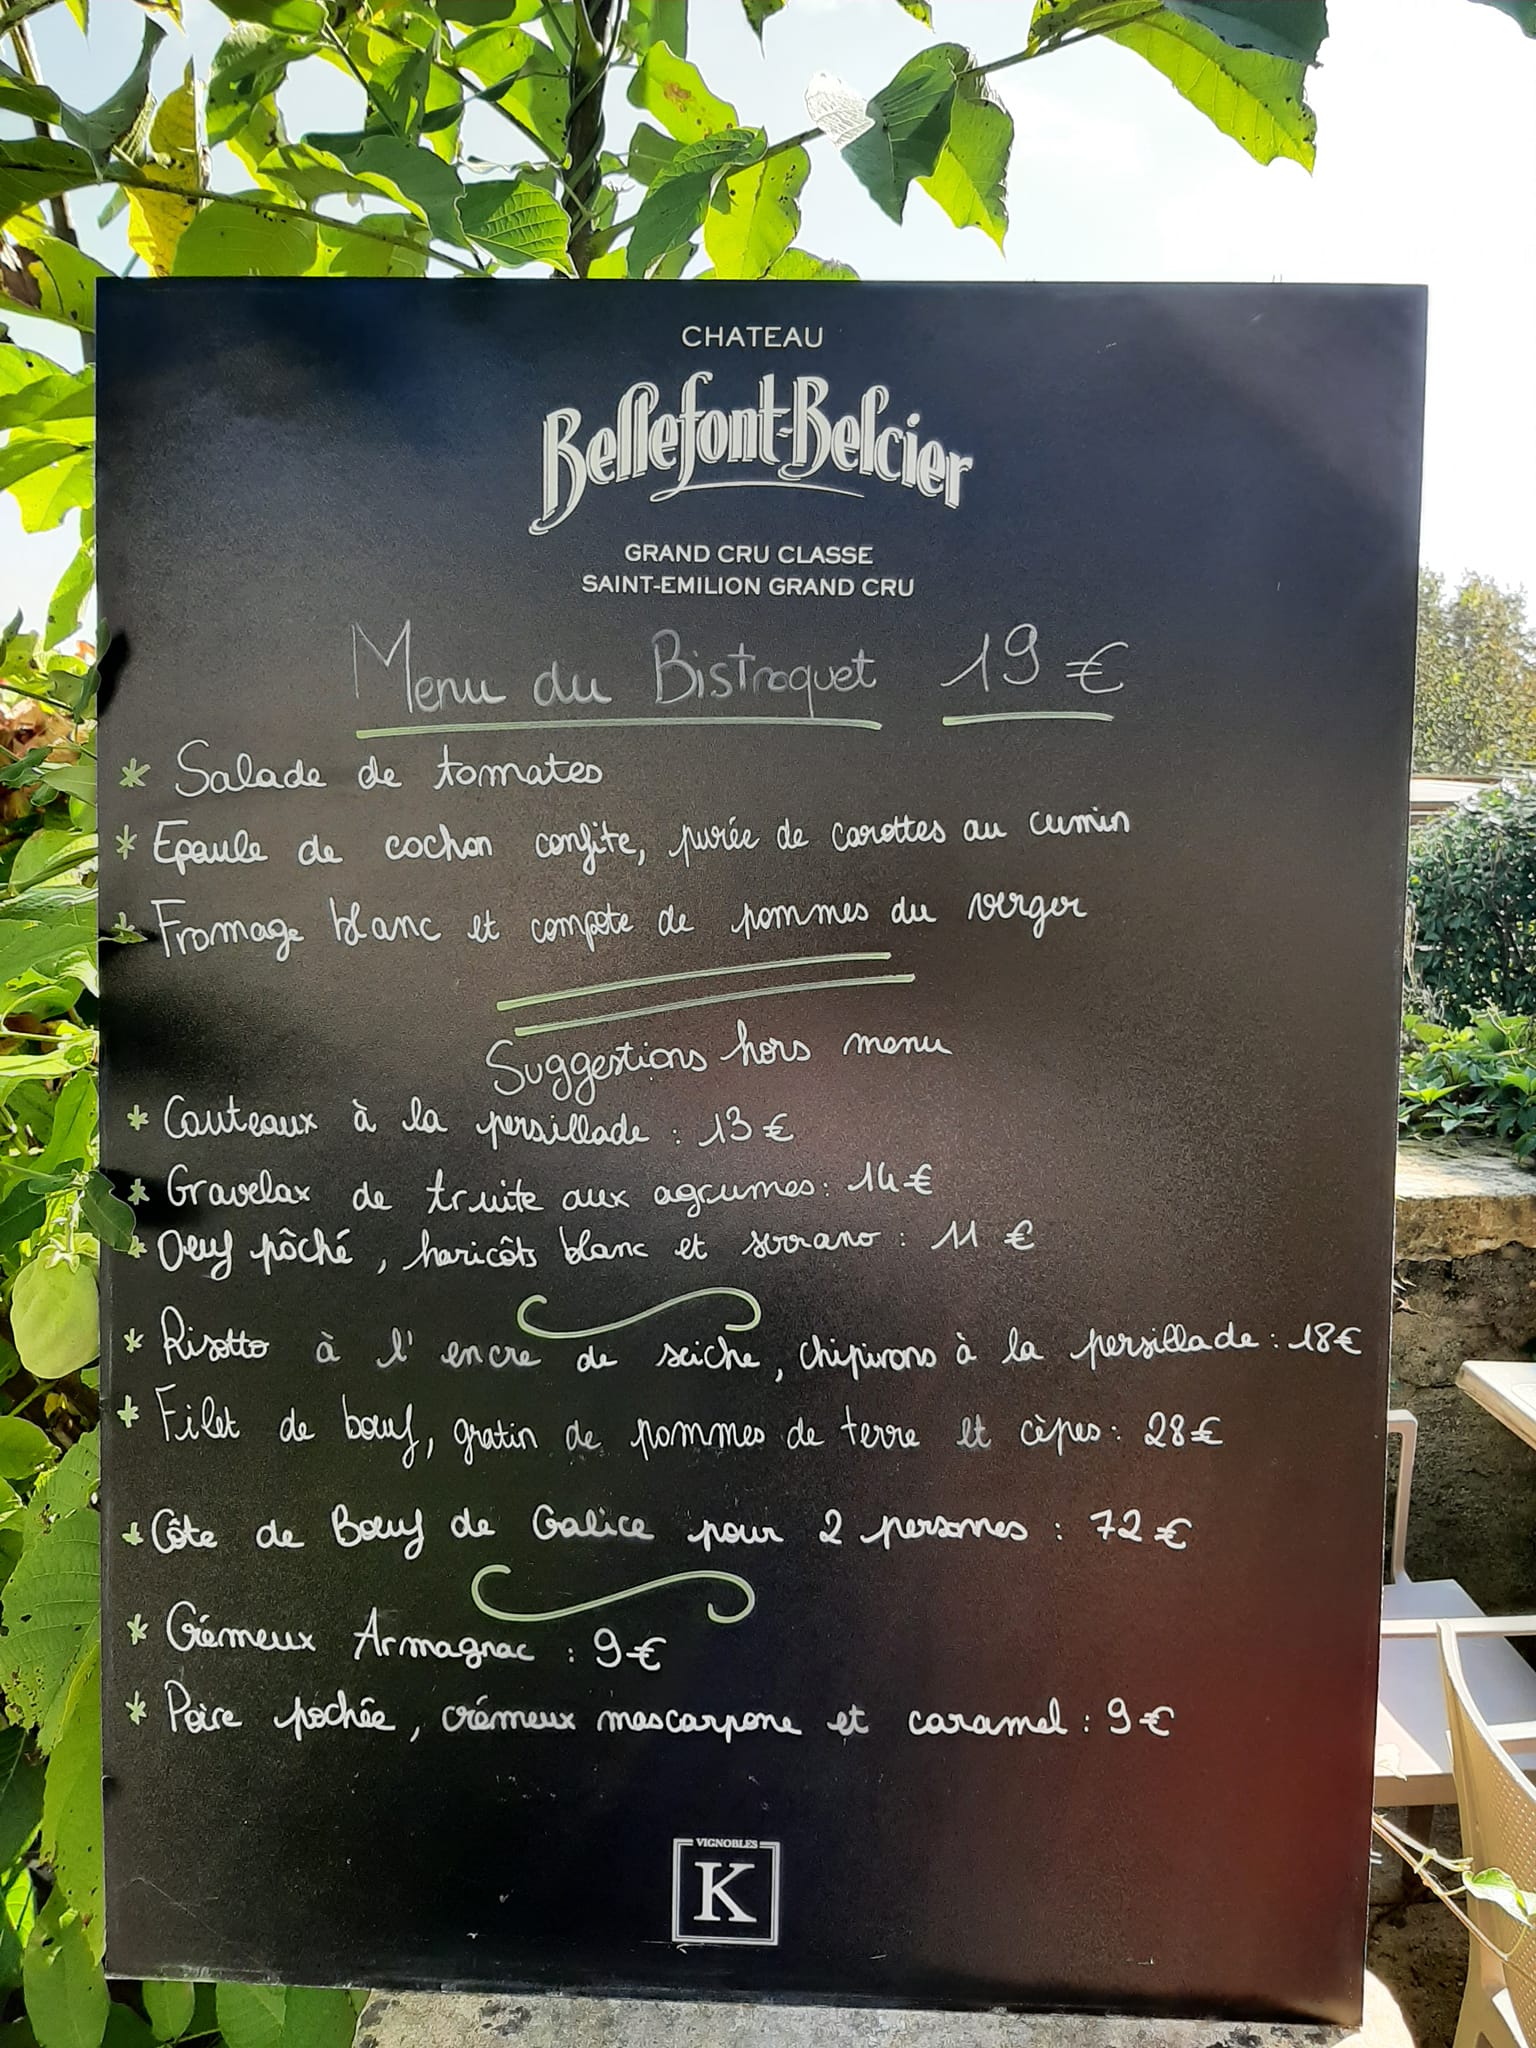 CHATEAU
Bellefont-Belcier
GRAND CRU CLASSE
SAINT-EMILION GRAND CRU
Menu du Bistroquet 19 €
* Salade de tomates
* Epaule de cochon confite, purée de carottes au cumin
* Fromage blanc et compote de pommes du verger
Suggestions hors menu
* Couteaux à la persillade : 13 €
* Gravelax de truite aux agrumes : 14 €
* Oeuf pôché, haricôts blanc et serrano : 11 €
* Risotto à l'encre de seiche, chipirons à la persillade : 18€
* Filet de bœuf, gratin de pommes de terre et cèpes : 28€
* Côte de Bœuf de Galice pour 2 personnes : 72 €
* Crémeux Armagnac : 9 €
* Poire pochée, crémeux mascarpone et caramel : 9 €
VIGNOBLES
K